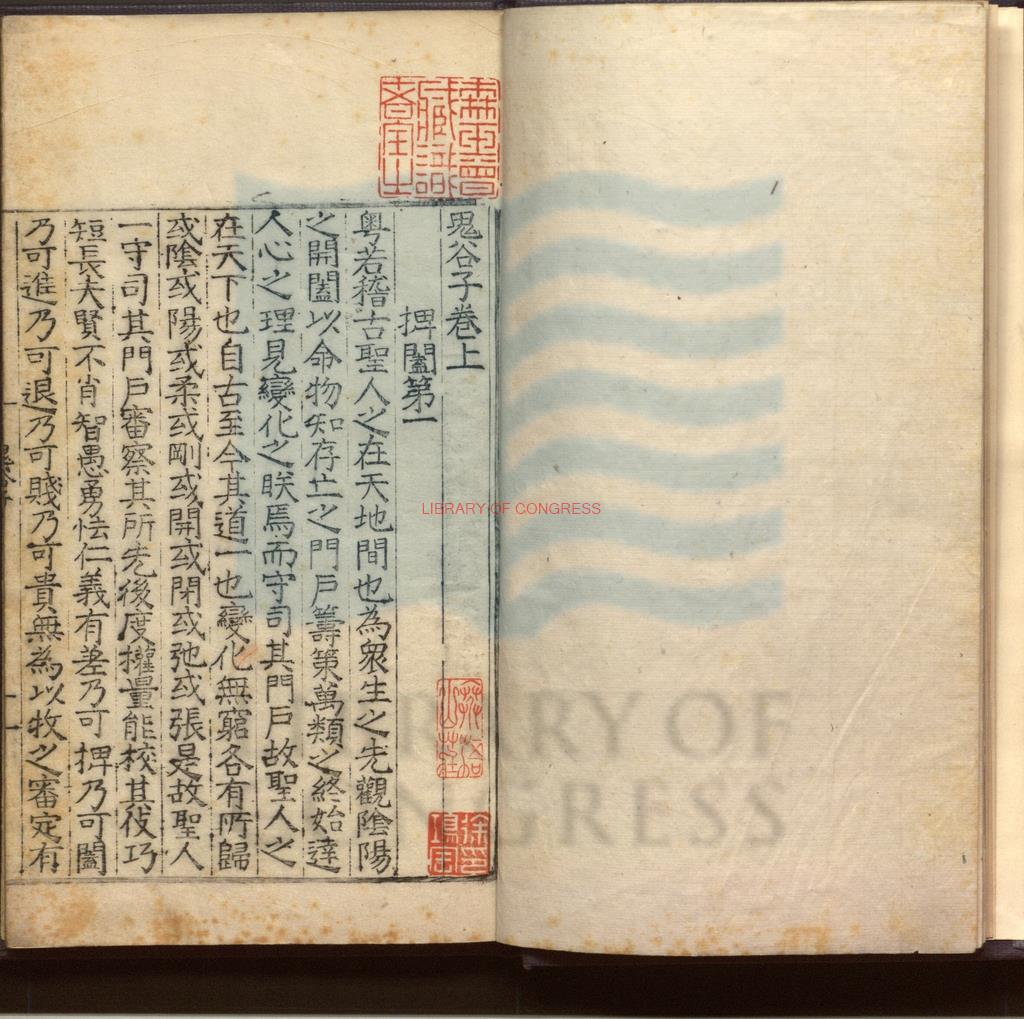 鬼谷子卷上
捭闔第一
粤若稽古聖人之在天地間也為衆生之先觀陰陽
之開闔以命物知存亡之門戶籌策萬類之終始達
人心之理見變化之眹焉而守司其門戶故聖人之
在天下也自古至今其道一也變化無窮各有所歸
或陰或陽或柔或剛或開或閉或弛或張是故聖人
一守司其門戶審察其所先後度權量能校其伎巧
短長夫賢不肖智愚勇怯仁義有差乃可捭乃可闔
乃可進乃可退乃可賤乃可貴無為以牧之審定有
LIBRARY OF CONGRESS
LIBRARY OF
CONGRESS